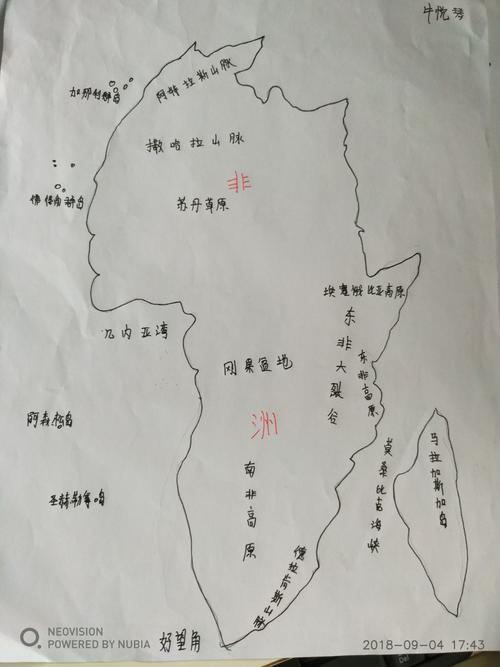 牛悦琴
阿特拉斯山脉
加那利群岛
撒哈拉山脉
非
苏丹草原
佛得角群岛
埃塞俄比亚高原
几内亚湾
东非大裂谷
东非高原
刚果盆地
洲
阿森松岛
马拉加斯加岛
莫桑比克海峡
圣赫勒拿岛
南非高原
德拉肯斯山脉
好望角
NEOVISION
POWERED BY NUBIA
2018-09-04 17:43